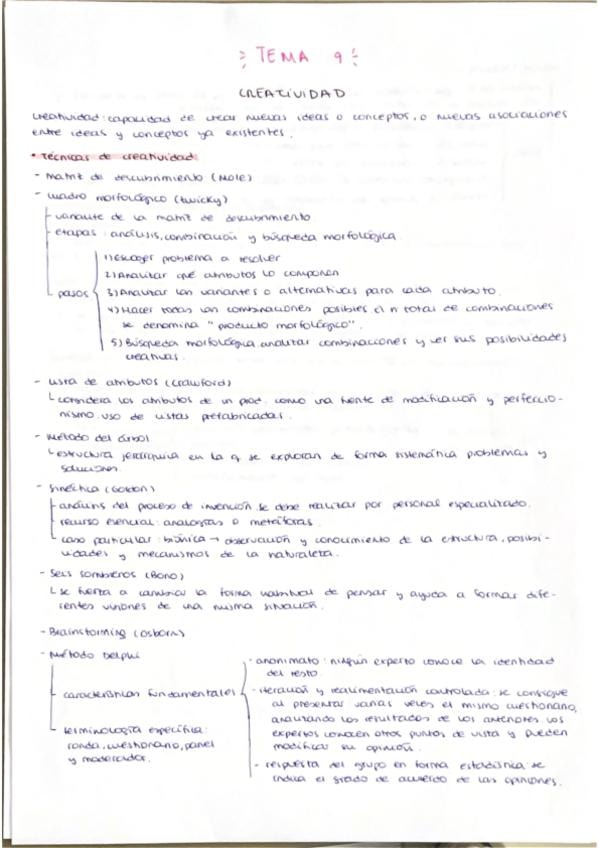 TEMA 9
CREATIVIDAD
Creatividad: capacidad de crear nuevas ideas o conceptos, o nuevas asociaciones
entre ideas y conceptos ya existentes.
• Técnicas de creatividad
- Matriz de descubrimiento (Mole)
- Cuadro morfológico (twicky)
variante de la matriz de descubrimiento
etapas: análisis, combinación y búsqueda morfológica.
pasos
1) Escoger problema a resolver
2) Analizar qué atributos lo componen
3) Analizar las variantes o alternativas para cada atributo.
4) Hacer todas las combinaciones posibles el n total de combinaciones
se denomina "producto morfológico".
5) Búsqueda morfológica, analizar combinaciones y ver sus posibilidades
creativas.
- Lista de atributos (Crawford)
considera los atributos de un prod. como una fuente de modificación y perfeccio-
nismo. uso de listas prefabricadas.
- Método del árbol
estructura jerárquica en la q. se exploran de forma sistemática problemas y
soluciones.
- Sinéctica (Gordon)
análisis del proceso de invención. se debe realizar por personal especializado.
recurso esencial: analogías o metáforas.
caso particular: biónica → observación y conocimiento de la estructura, posibi-
lidades y mecanismos de la naturaleza.
- Seis sombreros (Bono)
se fuerza a cambiar la forma habitual de pensar y ayuda a formar dife-
rentes visiones de una misma situación.
- Brainstorming (Osborn)
- Método Delphi
características fundamentales
- anonimato: ningún experto conoce la identidad
del resto.
- iteración y realimentación controlada: se consigue
al presentar varias veces el mismo cuestionario,
analizando los resultados de los anteriores. los
expertos conocen otros puntos de vista y pueden
modificar su opinión.
- respuesta del grupo en forma estadística: se
indica el grado de acuerdo de las opiniones.
terminología específica:
ronda, cuestionario, panel
y moderador.